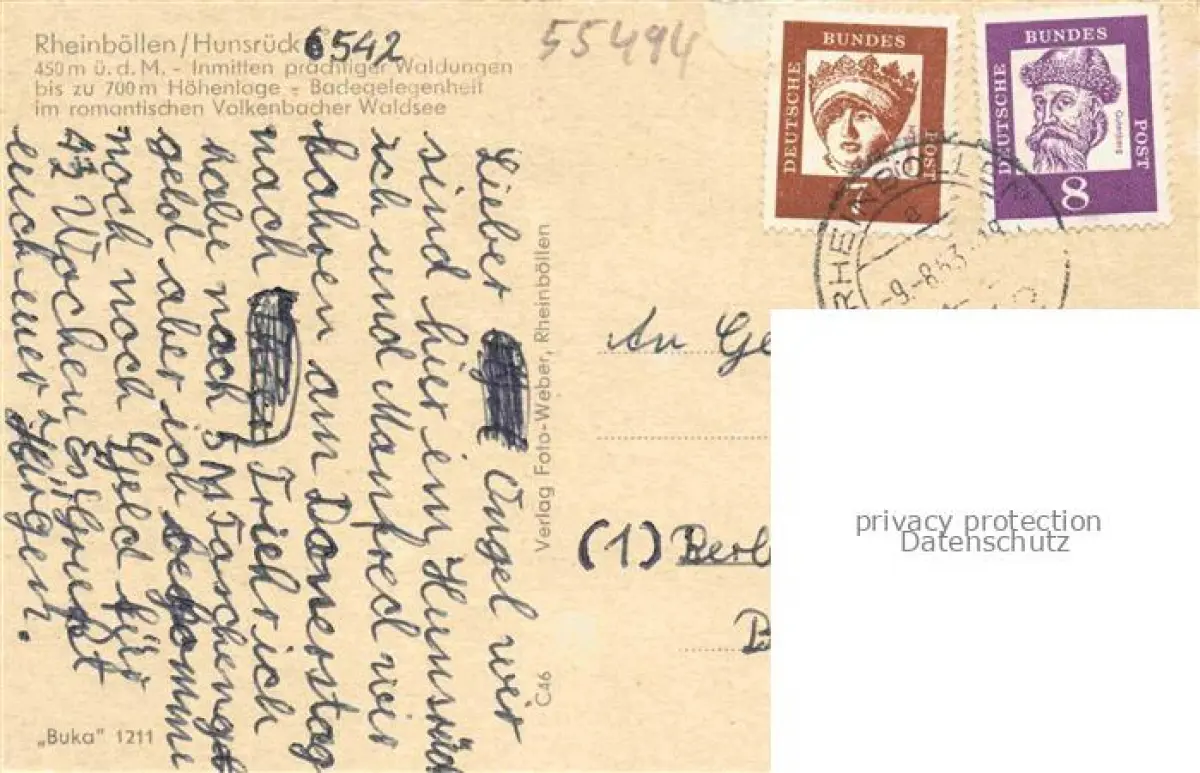 Rheinböllen/Hunsrück 6542
450 m ü. d. M. - Inmitten prächtiger Waldungen
bis zu 700 m Höhenlage - Badegelegenheit
im romantischen Volkenbacher Waldsee
55494
DEUTSCHE BUNDES POST
DEUTSCHE BUNDES POST
Gutenberg
8
RHEINBÖLLEN
-9.-8.63
Lieber Ongel wir
sind hier im Hunsrück
ich und Manfred wir
fahren am Donerstag
nach Trier ich
habe noch 5 M Taschenge
geld aber ich begomme
noch noch Geld für
1½ Wochen Es grüßt
euch euer Jürgen.
Verlag Foto-Weber, Rheinböllen
C46
„Buka" 1211
An Ge
(1) Berl
B
privacy protection
Datenschutz